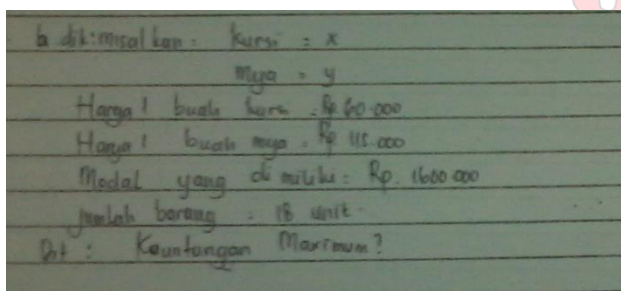 b dik : misalkan : kursi = x
meja = y
Harga 1 buah kursi = Rp. 60.000
Harga 1 buah meja = Rp 115.000
Modal yang di miliki : Rp. 1600 000
jumlah barang : 18 unit.
Dit : Keuntungan Maximum?